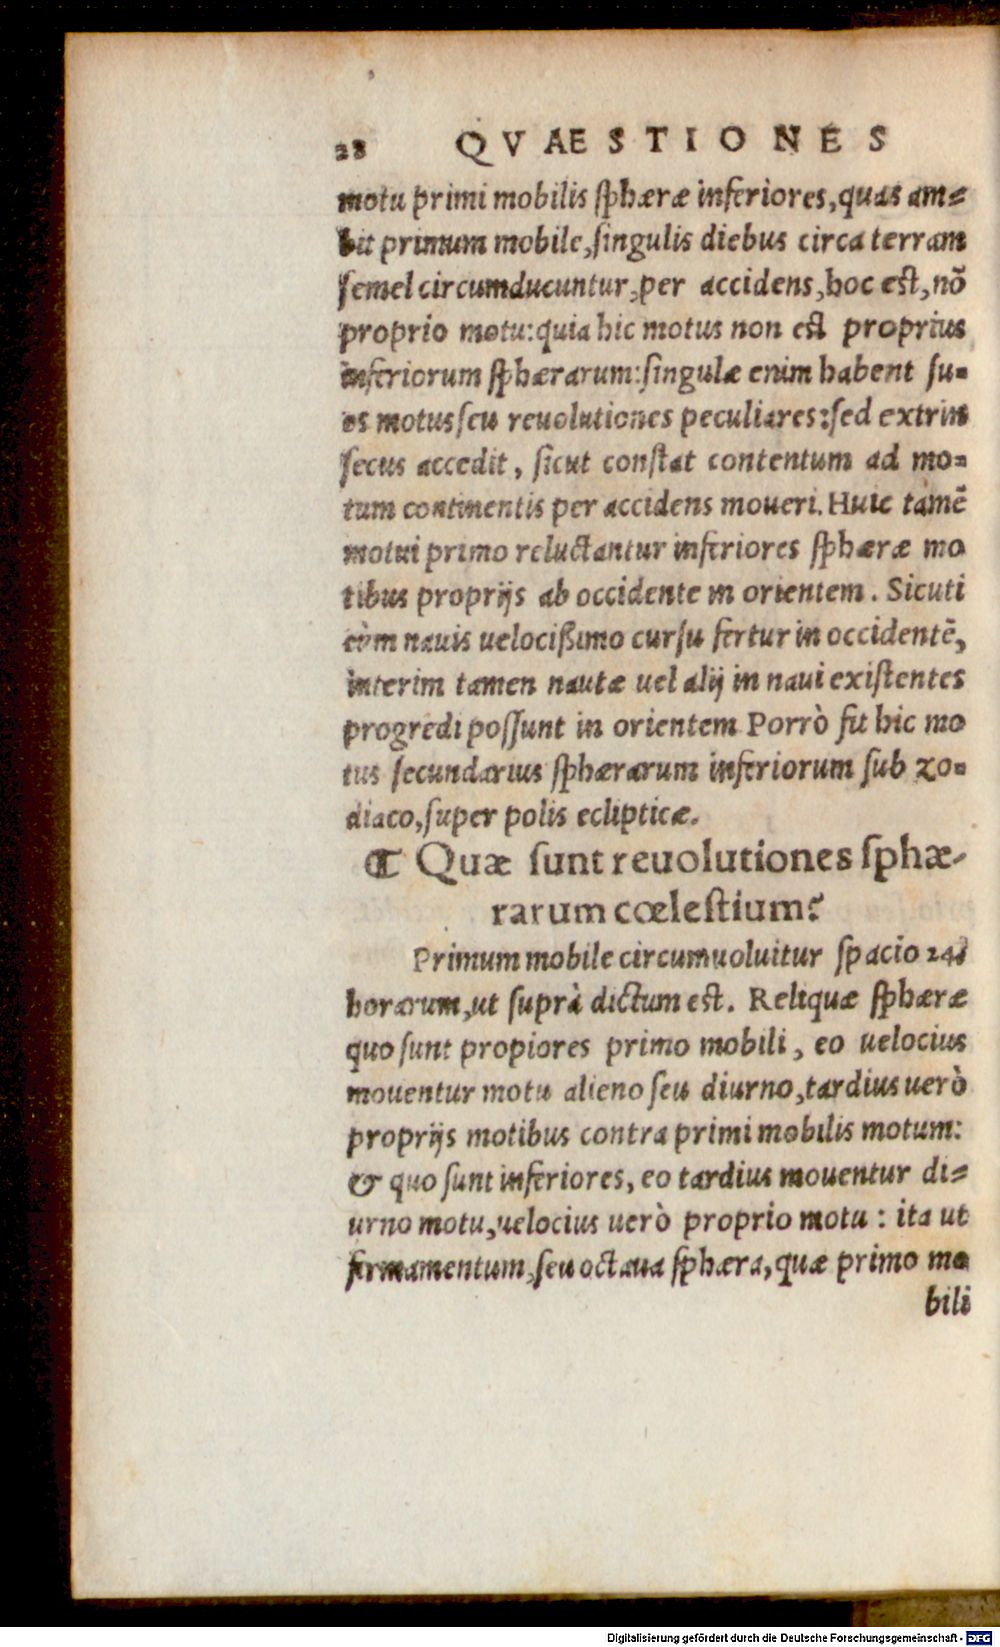 28 QVAESTIONES
motu primi mobilis sphæræ inferiores, quas am=
bit primum mobile, singulis diebus circa terram
semel circumducuntur, per accidens, hoc est, nõ
proprio motu: quia hic motus non est proprius
inferiorum sphærarum: singulæ enim habent su=
os motus seu reuolutiones peculiares: sed extrin
secus accedit, sicut constat contentum ad mo=
tum continentis per accidens moueri. Huic tamẽ
motui primo reluctantur inferiores sphæræ mo
tibus proprijs ab occidente in orientem. Sicuti
cùm nauis uelocißimo cursu fertur in occidentẽ,
interim tamen nautæ uel alij in naui existentes
progredi possunt in orientem Porrò fit hic mo
tus secundarius sphærarum inferiorum sub zo=
diaco, super polis eclipticæ.
¶ Quæ sunt reuolutiones sphæ-
rarum cœlestium?
Primum mobile circumuoluitur spacio 24
horarum, ut suprà dictum est. Reliquæ sphæræ
quo sunt propiores primo mobili, eo uelocius
mouentur motu alieno seu diurno, tardius uerò
proprijs motibus contra primi mobilis motum:
& quo sunt inferiores, eo tardius mouentur di=
urno motu, uelocius uerò proprio motu: ita ut
firmamentum, seu octaua sphæra, quæ primo mo
bili
Digitalisierung gefördert durch die Deutsche Forschungsgemeinschaft - DFG